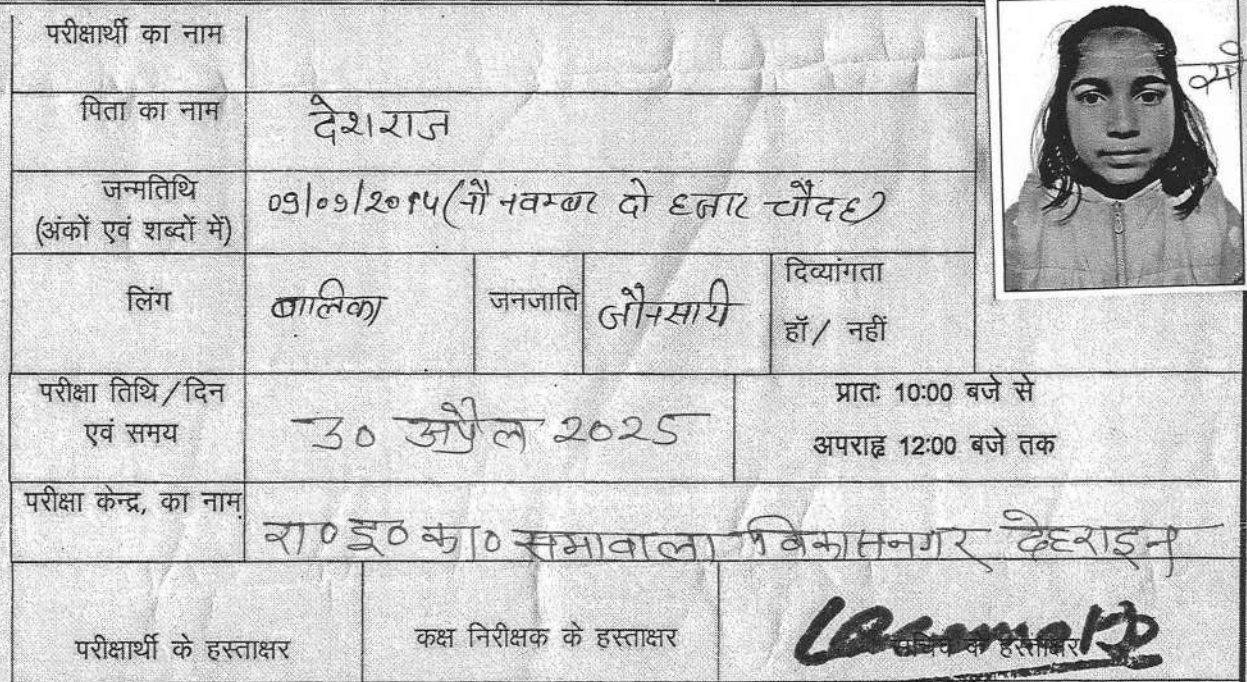 परीक्षार्थी का नाम
पिता का नाम देशराज
जन्मतिथि
(अंकों एवं शब्दों में) 09/09/2014 (नौ नवम्बर दो हजार चौदह)
लिंग बालिका जनजाति जौनसारी दिव्यांगता
हॉ / नहीं
परीक्षा तिथि / दिन
एवं समय 30 अप्रैल 2025 प्रातः 10:00 बजे से
अपराह्न 12:00 बजे तक
परीक्षा केन्द्र, का नाम रा० इ० का० सभावाला विकासनगर देहरादून
परीक्षार्थी के हस्ताक्षर कक्ष निरीक्षक के हस्ताक्षर सचिव के हस्ताक्षर